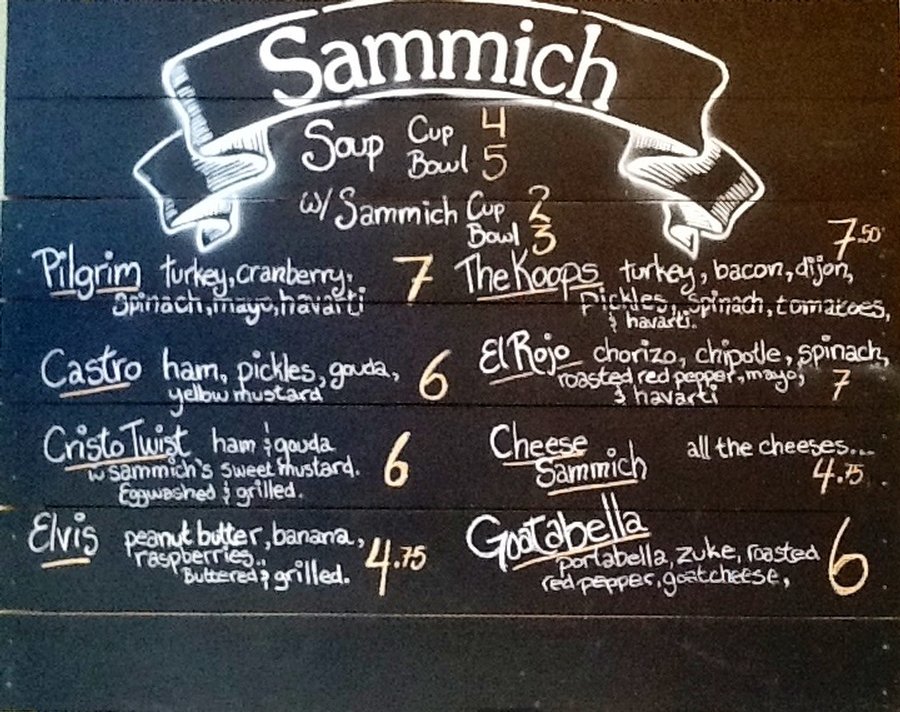 Sammich
Soup Cup 4
Bowl 5
w/ Sammich Cup 2
Bowl 3
Pilgrim turkey, cranberry, 7
Spinach, mayo, havarti
Castro ham, pickles, gouda, 6
yellow mustard
Cristo Twist ham & gouda
w sammich's sweet mustard. 6
Eggwashed & grilled.
Elvis peanut butter, banana,
raspberries.. 4.75
Buttered & grilled.
7.50
The Koops turkey, bacon, dijon,
pickles, spinach, tomatoes,
& havarti.
El Rojo chorizo, chipotle, spinach,
roasted red pepper, mayo, 7
& havarti
Cheese all the cheeses...
Sammich 4.75
Goatabella
portabella, zuke, roasted 6
red pepper, goat cheese,